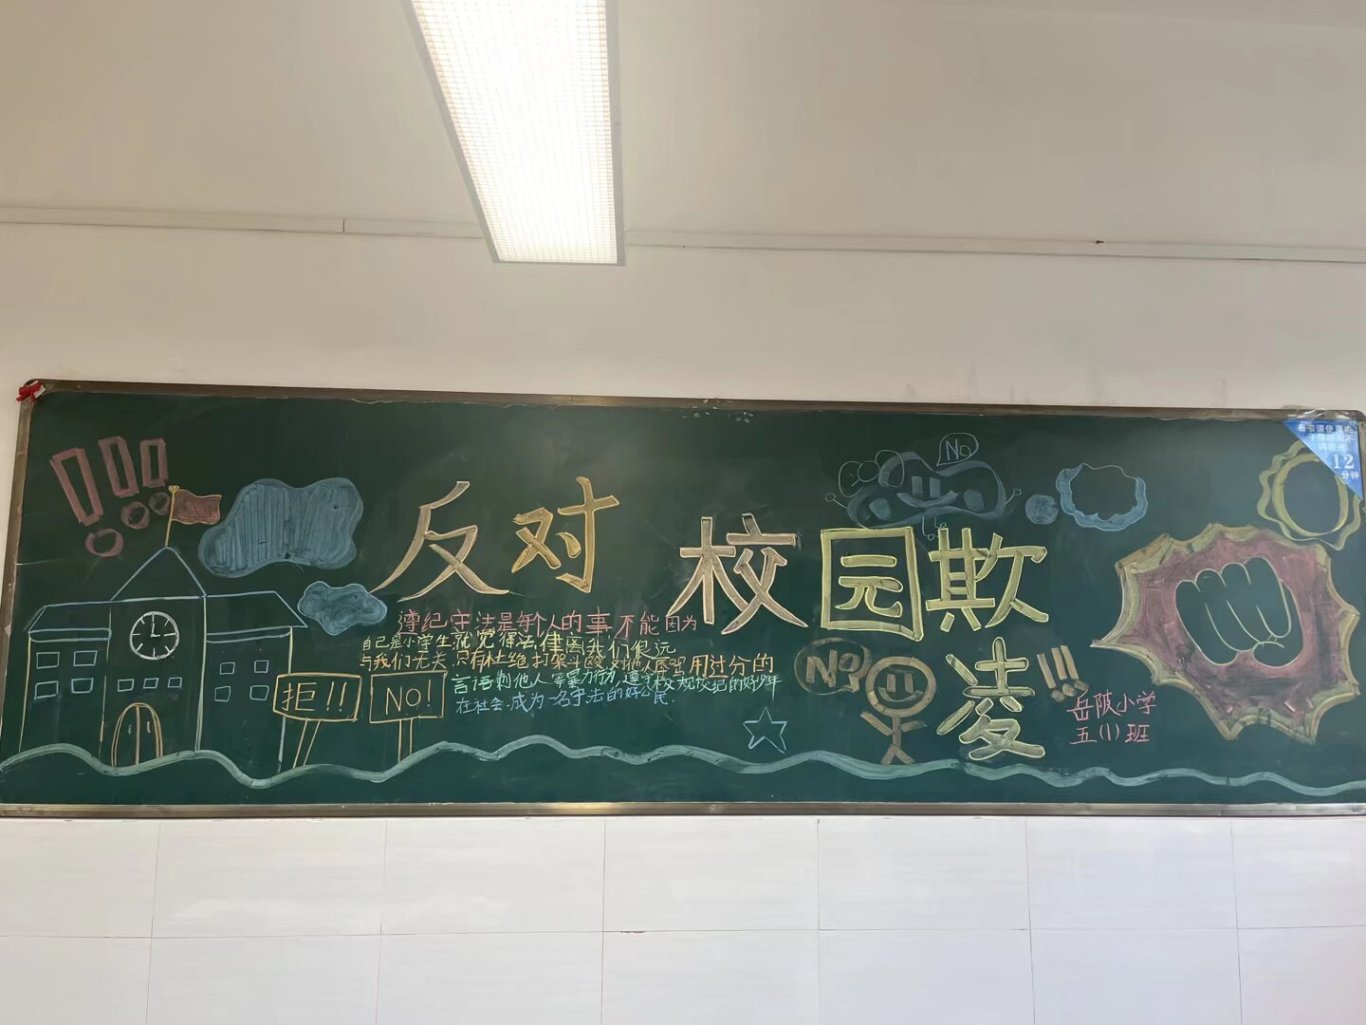 反对
校园欺
凌!!!
!!!
No
No
遵纪守法是每个人的事,不能因为
自己是小学生就觉得法律离我们很远
与我们无关,只有杜绝打架斗殴,对他人辱骂,用过分的
言语刺他人等暴力行为,遵守校规校纪的好少年
在社会.成为一名守法的好公民.
拒!!
NO!
岳陂小学
五(1)班
12
分钟